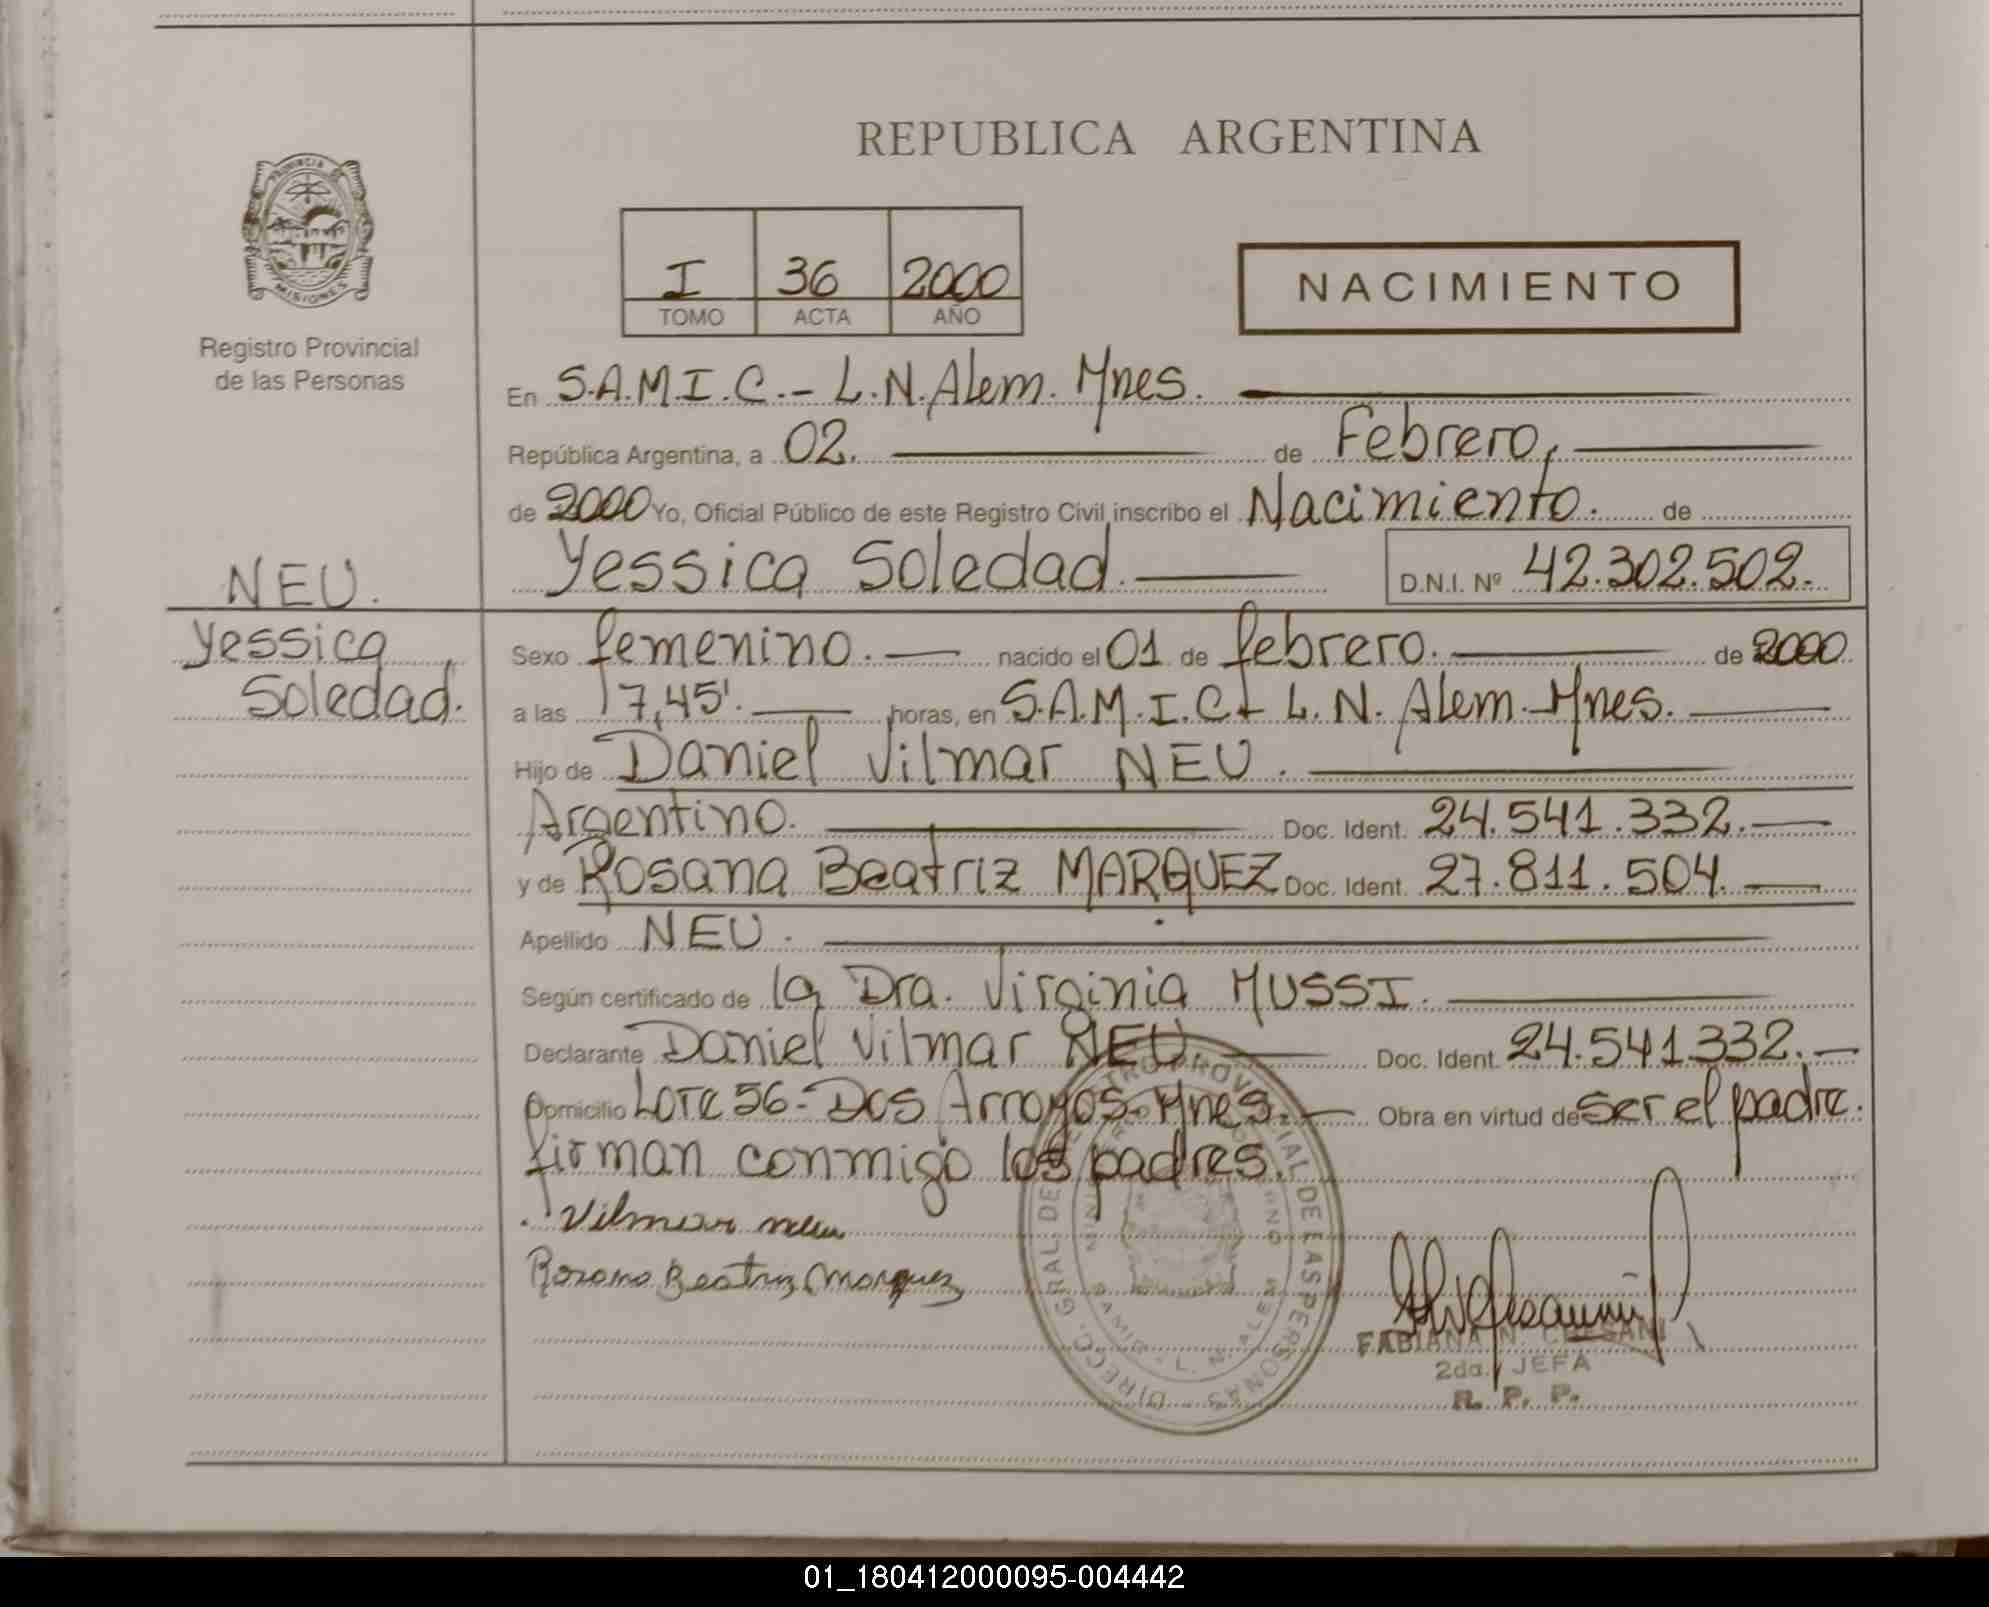 REPUBLICA ARGENTINA
PROVINCIA DE
MISIONES
Registro Provincial
de las Personas
I 36 2000
TOMO ACTA AÑO
NACIMIENTO
En S.A.M.I.C.- L.N.Alem. Mnes.
República Argentina, a 02. de Febrero,
de 2000 Yo, Oficial Público de este Registro Civil inscribo el Nacimiento. de
Yessica Soledad. D.N.I. Nº 42.302.502.
NEU.
Yessica
Soledad.
Sexo femenino. nacido el 01 de febrero. de 2000
a las 17,45'. horas, en S.A.M.I.C.- L.N. Alem.-Mnes.
Hijo de Daniel Vilmar NEU.
Argentino. Doc. Ident. 24.541.332.
y de Rosana Beatriz MARQUEZ Doc. Ident. 27.811.504.
Apellido NEU.
Según certificado de la Dra. Virginia MUSSI.
Declarante Daniel Vilmar NEU. Doc. Ident. 24.541332.
Domicilio Lote 56.- Dos Arroyos.-Mnes. Obra en virtud de ser el padre.
firman conmigo los padres.
Vilmar neu
Rosana Beatriz Marquez
DIRECC. GRAL. DE REGISTRO PROVINCIAL DE LAS PERSONAS
SAMIC - L. N. ALEM
FABIANA N. CRESANI
2da. JEFA
R. P. P.
01_180412000095-004442